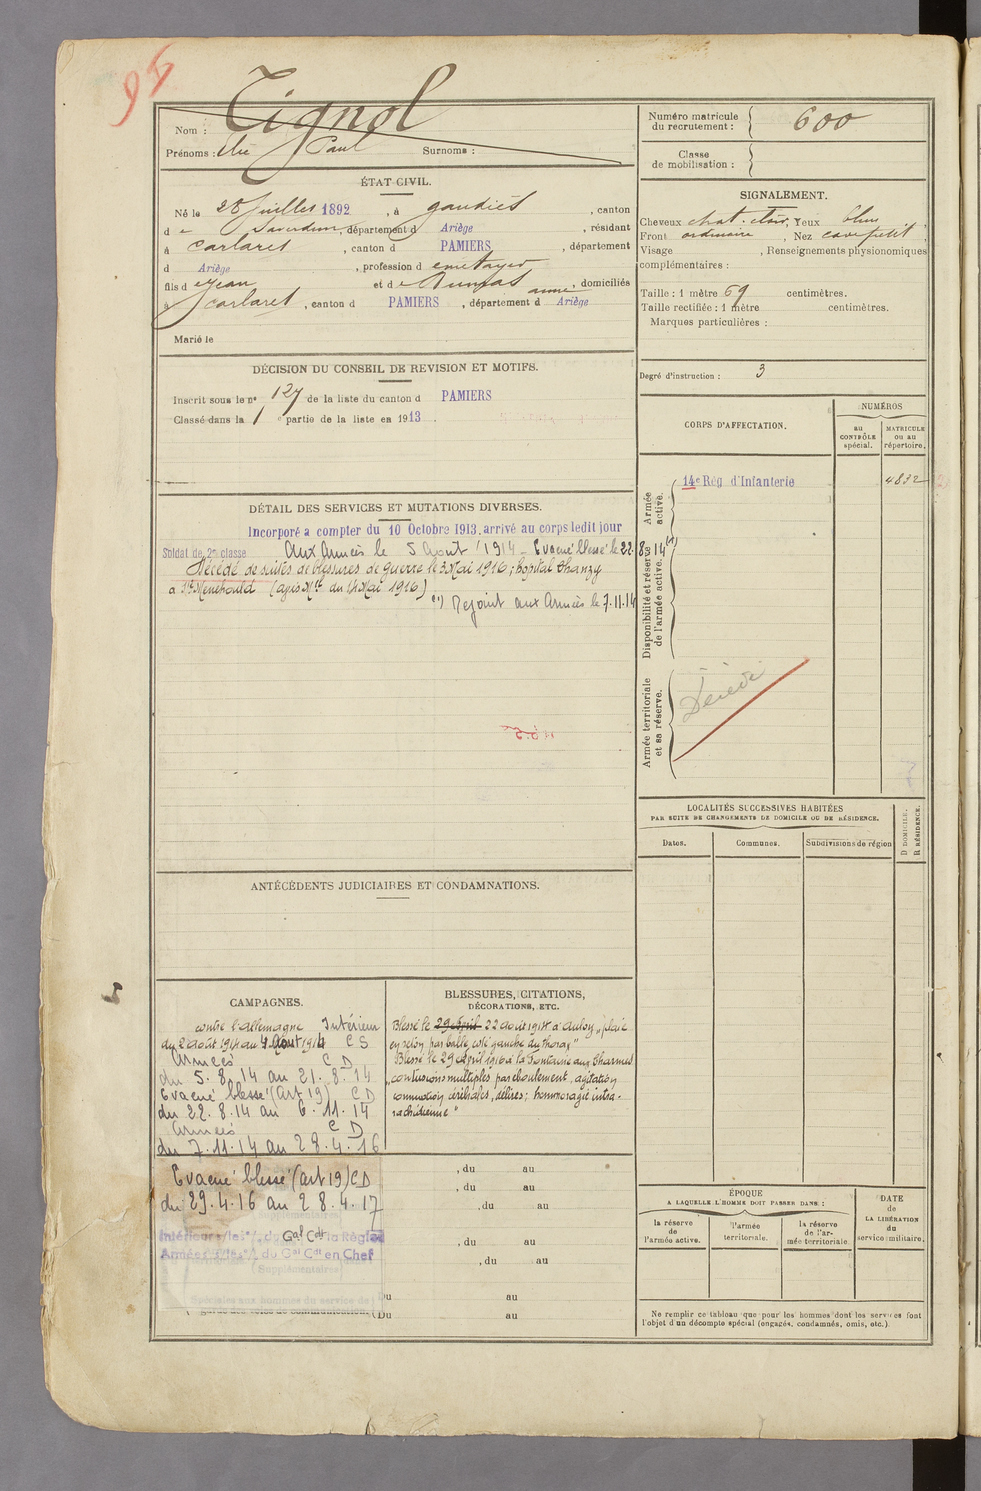 95
Nom : Tignol
Prénoms : Élie Paul Surnoms :
ÉTAT CIVIL.
Né le 28 Juillet 1892, à Gaudiès, canton
d e Saverdun, département d Ariège, résidant
à Carlaret, canton d PAMIERS, département
d Ariège, profession d
fils d e Jean et d e Dumas Anne, domiciliés
à Carlaret, canton d PAMIERS, département d Ariège
Marié le
DÉCISION DU CONSEIL DE REVISION ET MOTIFS.
Inscrit sous le n° 127 de la liste du canton d PAMIERS
Classé dans la 1 e partie de la liste en 1913.
DÉTAIL DES SERVICES ET MUTATIONS DIVERSES.
Incorporé à compter du 10 Octobre 1913, arrivé au corps ledit jour
Soldat de 2e classe Aux Armées le 5 Août 1914 - Evacué blessé le 22.8.14 (1)
Décédé de suites de blessures de guerre le 3 Mai 1916; hôpital Chanzy
à Ste Menéhould (avis Mel du 14 Mai 1916)
(1) Rejoint aux Armées le 7.11.14
ANTÉCÉDENTS JUDICIAIRES ET CONDAMNATIONS.
CAMPAGNES.
contre l'Allemagne Intérieur
du 2 août 1914 au 4 Août 1914 C S
Armées C D
du 5. 8. 14 au 21. 8. 14
Evacué blessé (art 19) C D
du 22. 8. 14 au 6. 11. 14
Armées C D
du 7. 11. 14 au 28. 4. 16
Evacué blessé (art 19) C D
du 29. 4. 16 au 28. 4. 17
Gal Cdt la Région
Armées du Gal Cdt en Chef
(Supplémentaires)
Spéciales aux hommes du service de
garde des voies de communication
BLESSURES, CITATIONS,
DÉCORATIONS, ETC.
Blessé le 29 April 22 août 1914 à Anloy "plaie
en séton par balle, côté gauche du thorax"
Blessé le 29 April 1916 à la Fontaine aux Charmes
"contusions multiples par éboulement, agitation
commotion cérébrales, délires; hémorragie intra-
rachidienne"
, du au
, du au
, du au
, du au
, du au
Du au
Du au
Numéro matricule
du recrutement : 600
Classe
de mobilisation :
SIGNALEMENT.
Cheveux chat. clair, Yeux bleus,
Front ordinaire, Nez cave petit,
Visage , Renseignements physionomiques
complémentaires :
Taille : 1 mètre 69 centimètres.
Taille rectifiée : 1 mètre centimètres.
Marques particulières :
Degré d'instruction : 3
CORPS D'AFFECTATION.
NUMÉROS
au
CONTRÔLE
spécial.
MATRICULE
ou au
répertoire.
Armée
active.
14e Rég d'Infanterie 4832
Disponibilité et réserve
de l'armée active.
Armée territoriale
et sa réserve.
Décédé
LOCALITÉS SUCCESSIVES HABITÉES
PAR SUITE DE CHANGEMENTS DE DOMICILE OU DE RÉSIDENCE.
Dates. Communes. Subdivisions de région
D DOMICILE.
R RÉSIDENCE.
ÉPOQUE
A LAQUELLE L'HOMME DOIT PASSER DANS :
la réserve
de
l'armée active.
l'armée
territoriale.
la réserve
de l'ar-
mée territoriale.
DATE
de
LA LIBÉRATION
du
service militaire.
Ne remplir ce tableau que pour les hommes dont les services font
l'objet d'un décompte spécial (engagés, condamnés, omis, etc.).